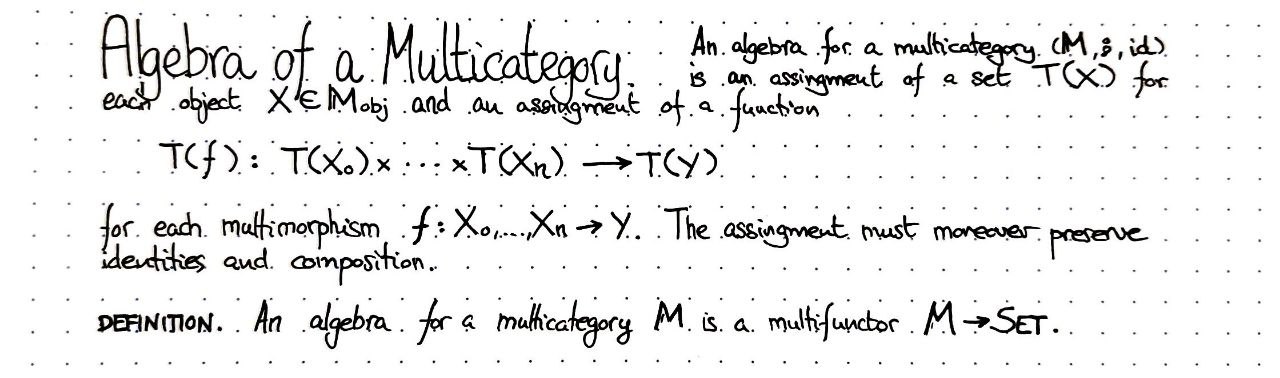 Algebra of a Multicategory. An algebra for a multicategory (M, ⨟, id)
is an assingment of a set T(X) for
each object X ∈ Mobj and an assingment of a function
T(f): T(X₀) × ··· × T(Xn) → T(Y)
for each multimorphism f: X₀,...,Xn → Y. The assingment must moreover preserve
identities and composition.
DEFINITION. An algebra for a multicategory M is a multifunctor M → SET.